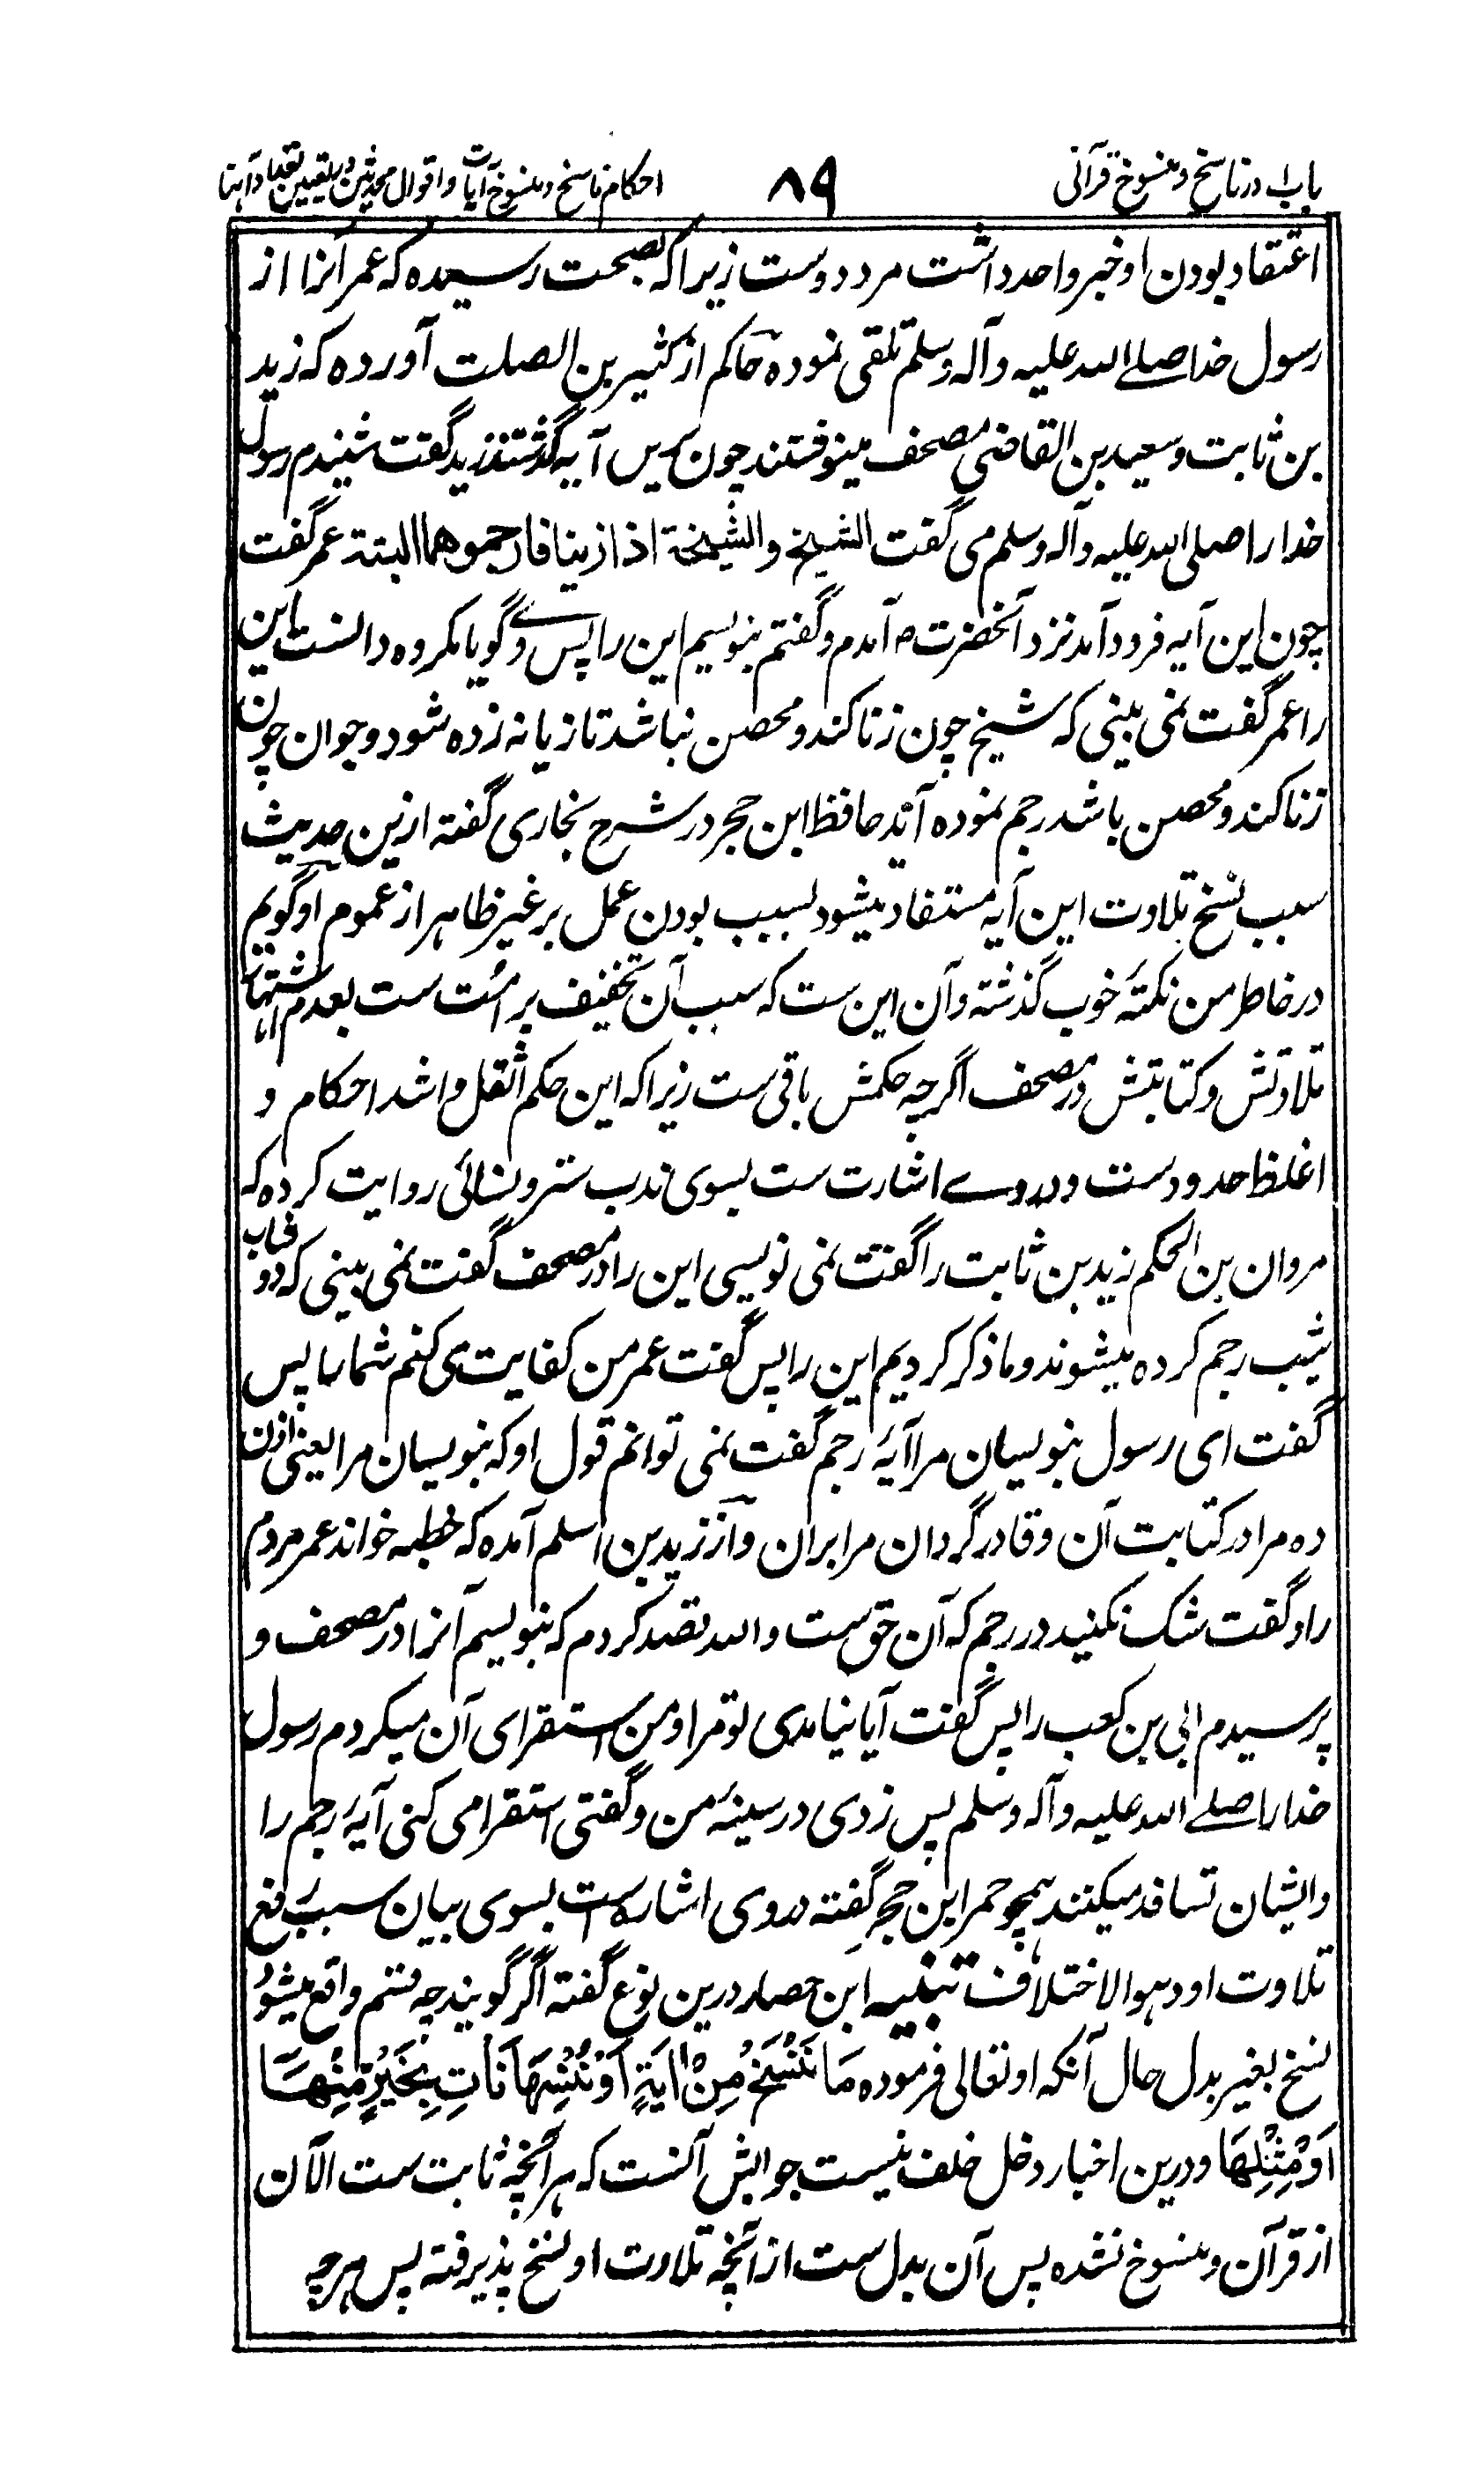 باب ا در ناسخ و منسوخ قرآنی
۸۹
احکام ناسخ و منسوخ آیات و اقوال محدثین در تعیین تعداد آنها
اعتقاد بودن او خبر واحد داشت مردودست زیرا که بصحت رسیده که عمر آنرا از
رسول خدا صلے الله علیه وآله وسلم تلقی نموده حاکم از کثیر بن الصلت آورده که زید
بن ثابت وسعید بن القاضی مصحف مینوشتند چون برین آیه گذشتند زید گفت شنیدم رسول
خدا را صلی الله علیه وآله وسلم می گفت الشیخ والشیخة اذا زنیا فارجموهما البتة عمر گفت
چون این آیه فرود آمد نزد آنحضرت ص آمدم وگفتم بنویسم این را پس وے گویا مکروه دانست این
را عمر گفت نمی بینی که شیخ چون زنا کند و محصن نباشد تازیانه زده شود و جوان چون
زنا کند و محصن باشد رجم نموده آید حافظ ابن حجر در شرح بخاری گفته ازین حدیث
سبب نسخ تلاوت این آیه مستفاد میشود بسبب بودن عمل بر غیر ظاهر از عموم او گویم
در خاطر من نکتهٔ خوب گذشته وآن این ست که سبب آن تخفیف بر امت ست بعدم اشتهار
تلاوتش و کتابتش در مصحف اگرچه حکمش باقی ست زیرا که این حکم اثقل و اشد احکام و
اغلظ حدودست و دروے اشارت ست بسوی ندب ستر و نسائی روایت کرده که
مروان بن الحکم زید بن ثابت را گفت نمی نویسی این را در مصحف گفت نمی بینی که دو شاب
ثیب رجم کرده میشوند و ما ذکر کردیم این را پس گفت عمر من کفایت می کنم شما را پس
گفت ای رسول بنویسان مرا آیهٔ رجم گفت نمی توانم قول او که بنویسان مرا یعنی اذن
ده مرا در کتابت آن و قادر گردان مرا بران و از زید بن اسلم آمده که خطبه خواند عمر مردم
را و گفت شک نکنید در رجم که آن حق ست والله قصد کردم که بنویسم آنرا در مصحف و
پرسیدم ابی بن کعب را پس گفت آیا نیامدی تو مرا و من استقرای آن میکردم رسول
خدا را صلے الله علیه وآله وسلم پس زدی در سینهٔ من و گفتی استقرا می کنی آیهٔ رجم را
وایشان تسافد میکنند همچو حمر ابن حجر گفته دروی اشاره است بسوی بیان سبب رفع
تلاوت او وهو الاختلاف تنبیه ابن حصار درین نوع گفته اگر گویند چه قسم واقع میشود
نسخ بغیر بدل حال آنکه او تعالی فرموده مَا نَنْسَخْ مِنْ اٰیَةٍ اَوْ نُنْسِهَا نَاْتِ بِخَیْرٍ مِّنْهَا
اَوْ مِثْلِهَا و درین اخبار دخل خلف نیست جوابش آنست که هر آنچه ثابت ست الآن
از قرآن و منسوخ نشده پس آن بدل ست از آنچه تلاوت او نسخ پذیرفته پس هرچه